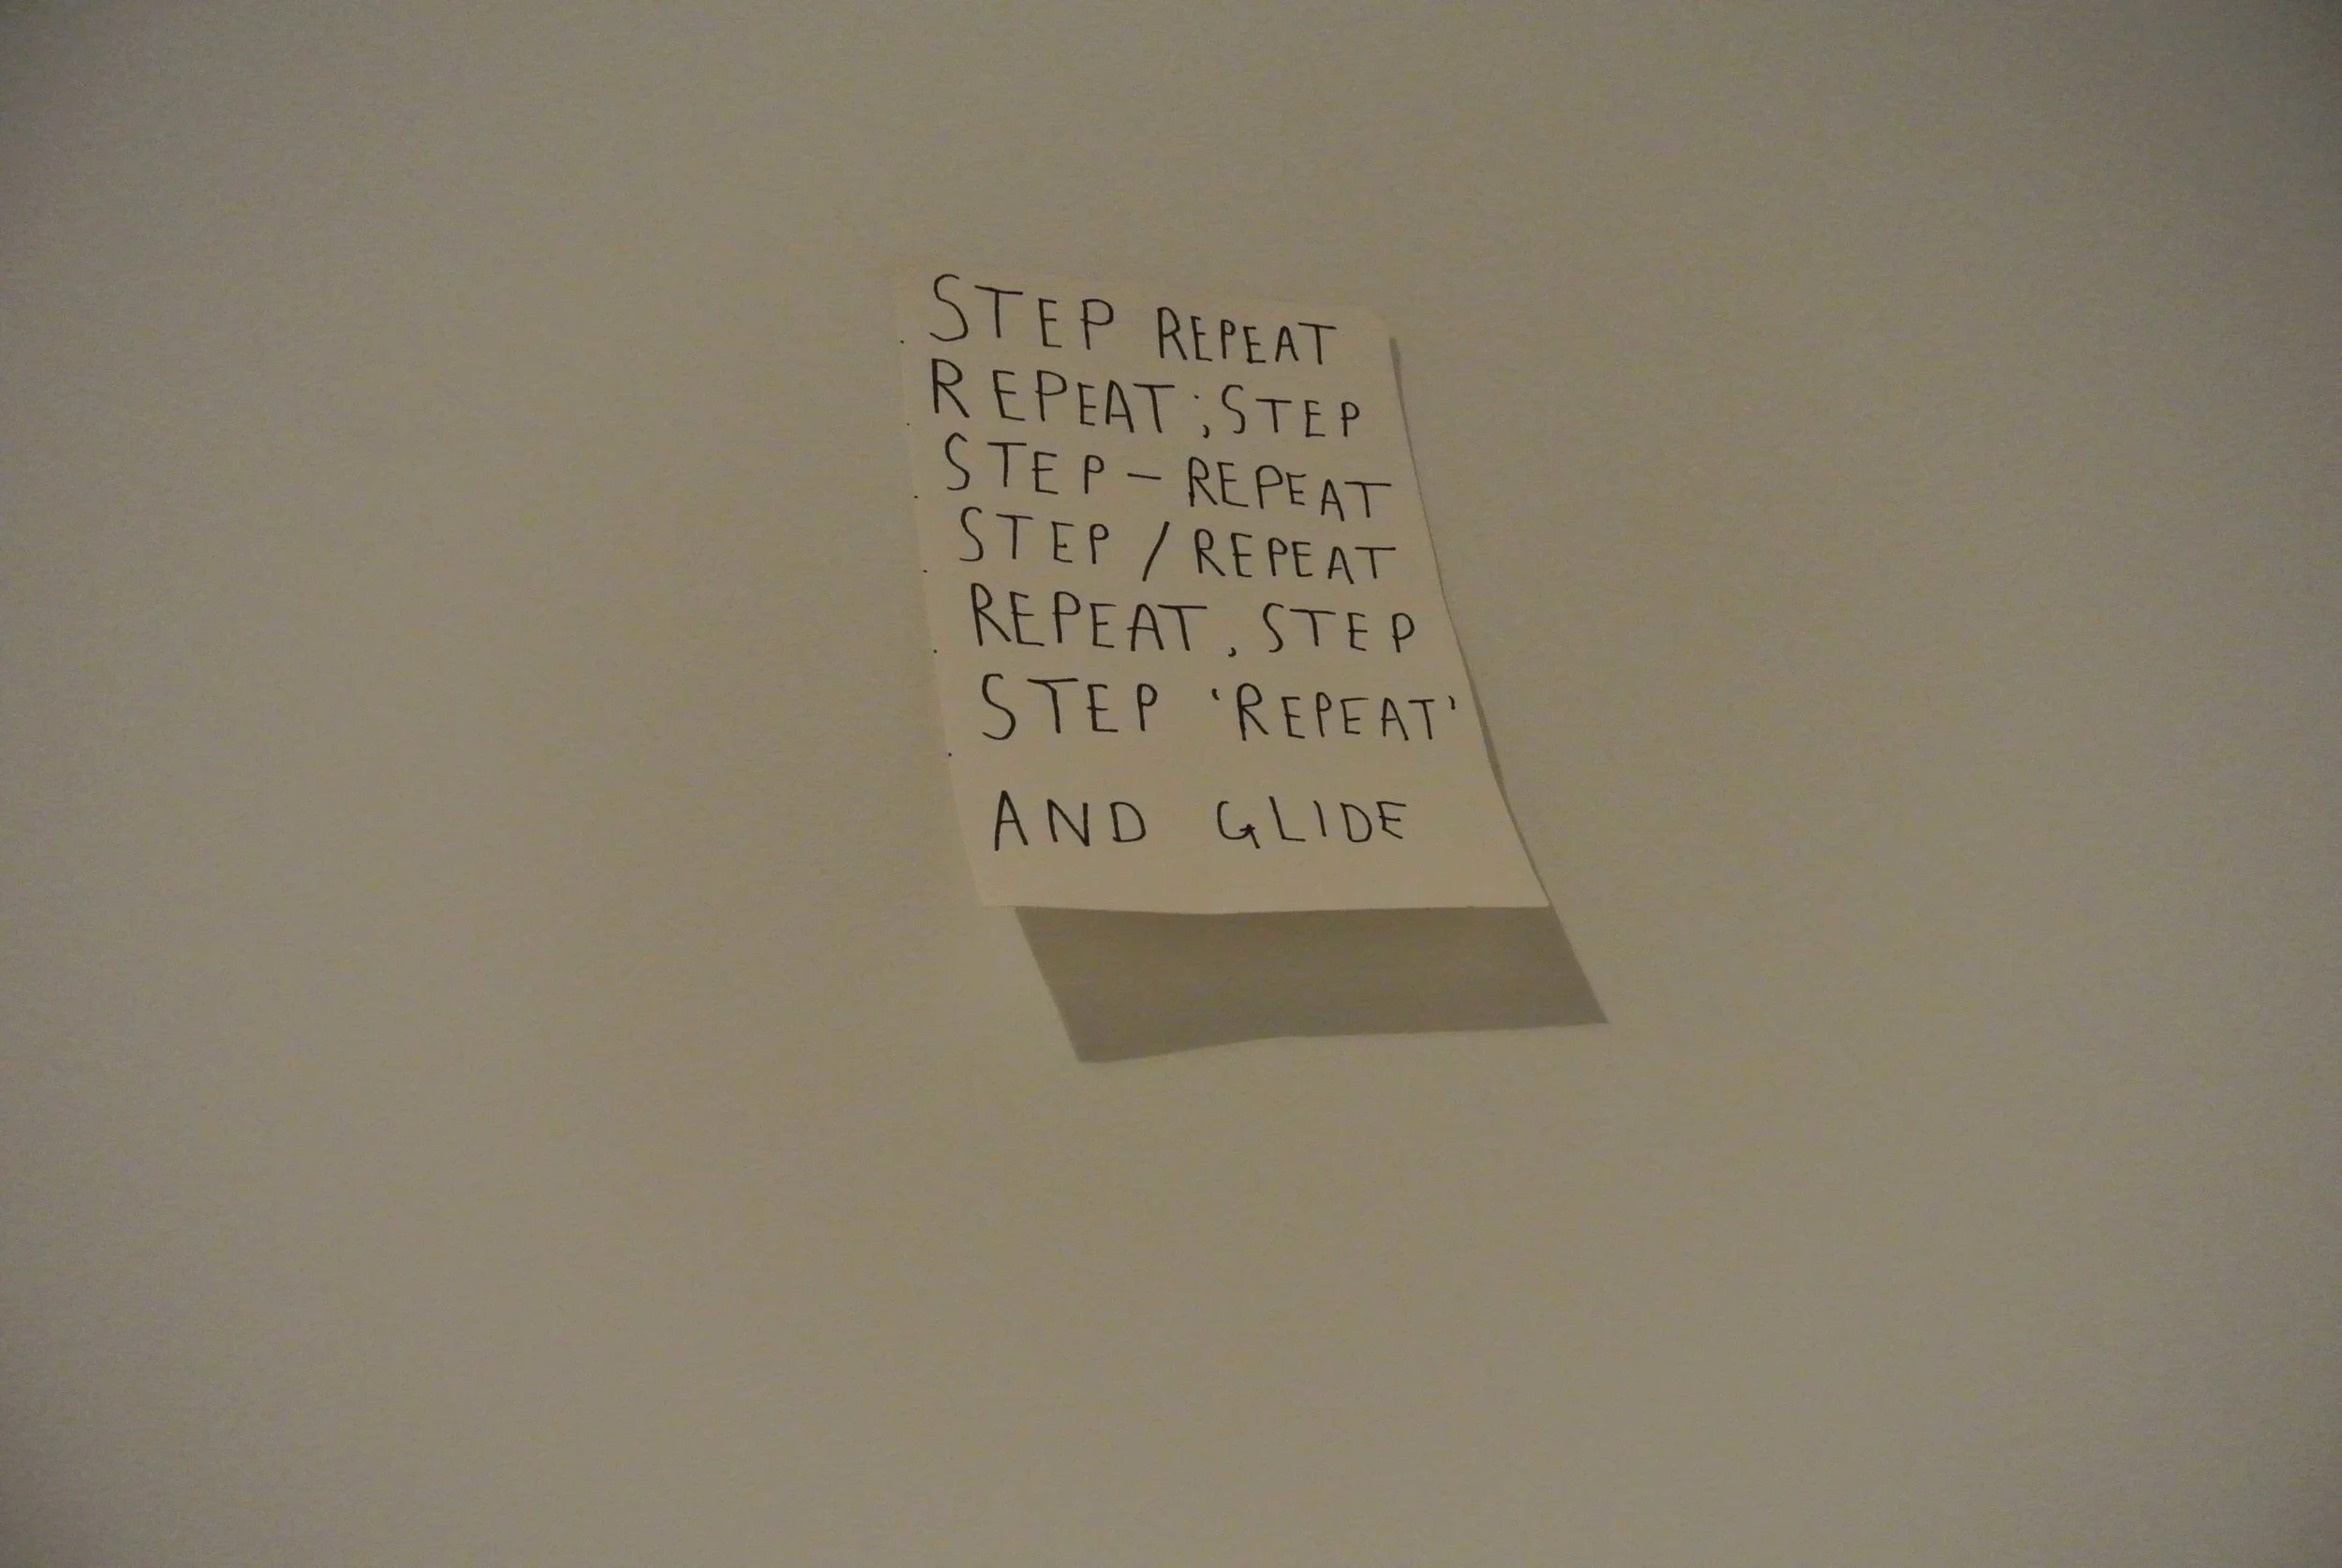 STEP REPEAT
REPEAT;STEP
STEP – REPEAT
STEP / REPEAT
REPEAT, STEP
STEP ‘REPEAT’
AND GLIDE